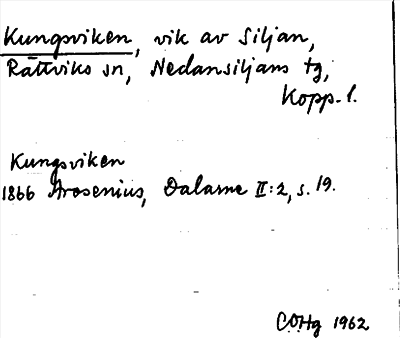 Kungsviken, vik av Siljan,
Rättviks sn, Nedansiljans tg,
Kopp. l.
Kungsviken
1866 Arosenius, Dalarne II:2, s. 19.
COHg 1962